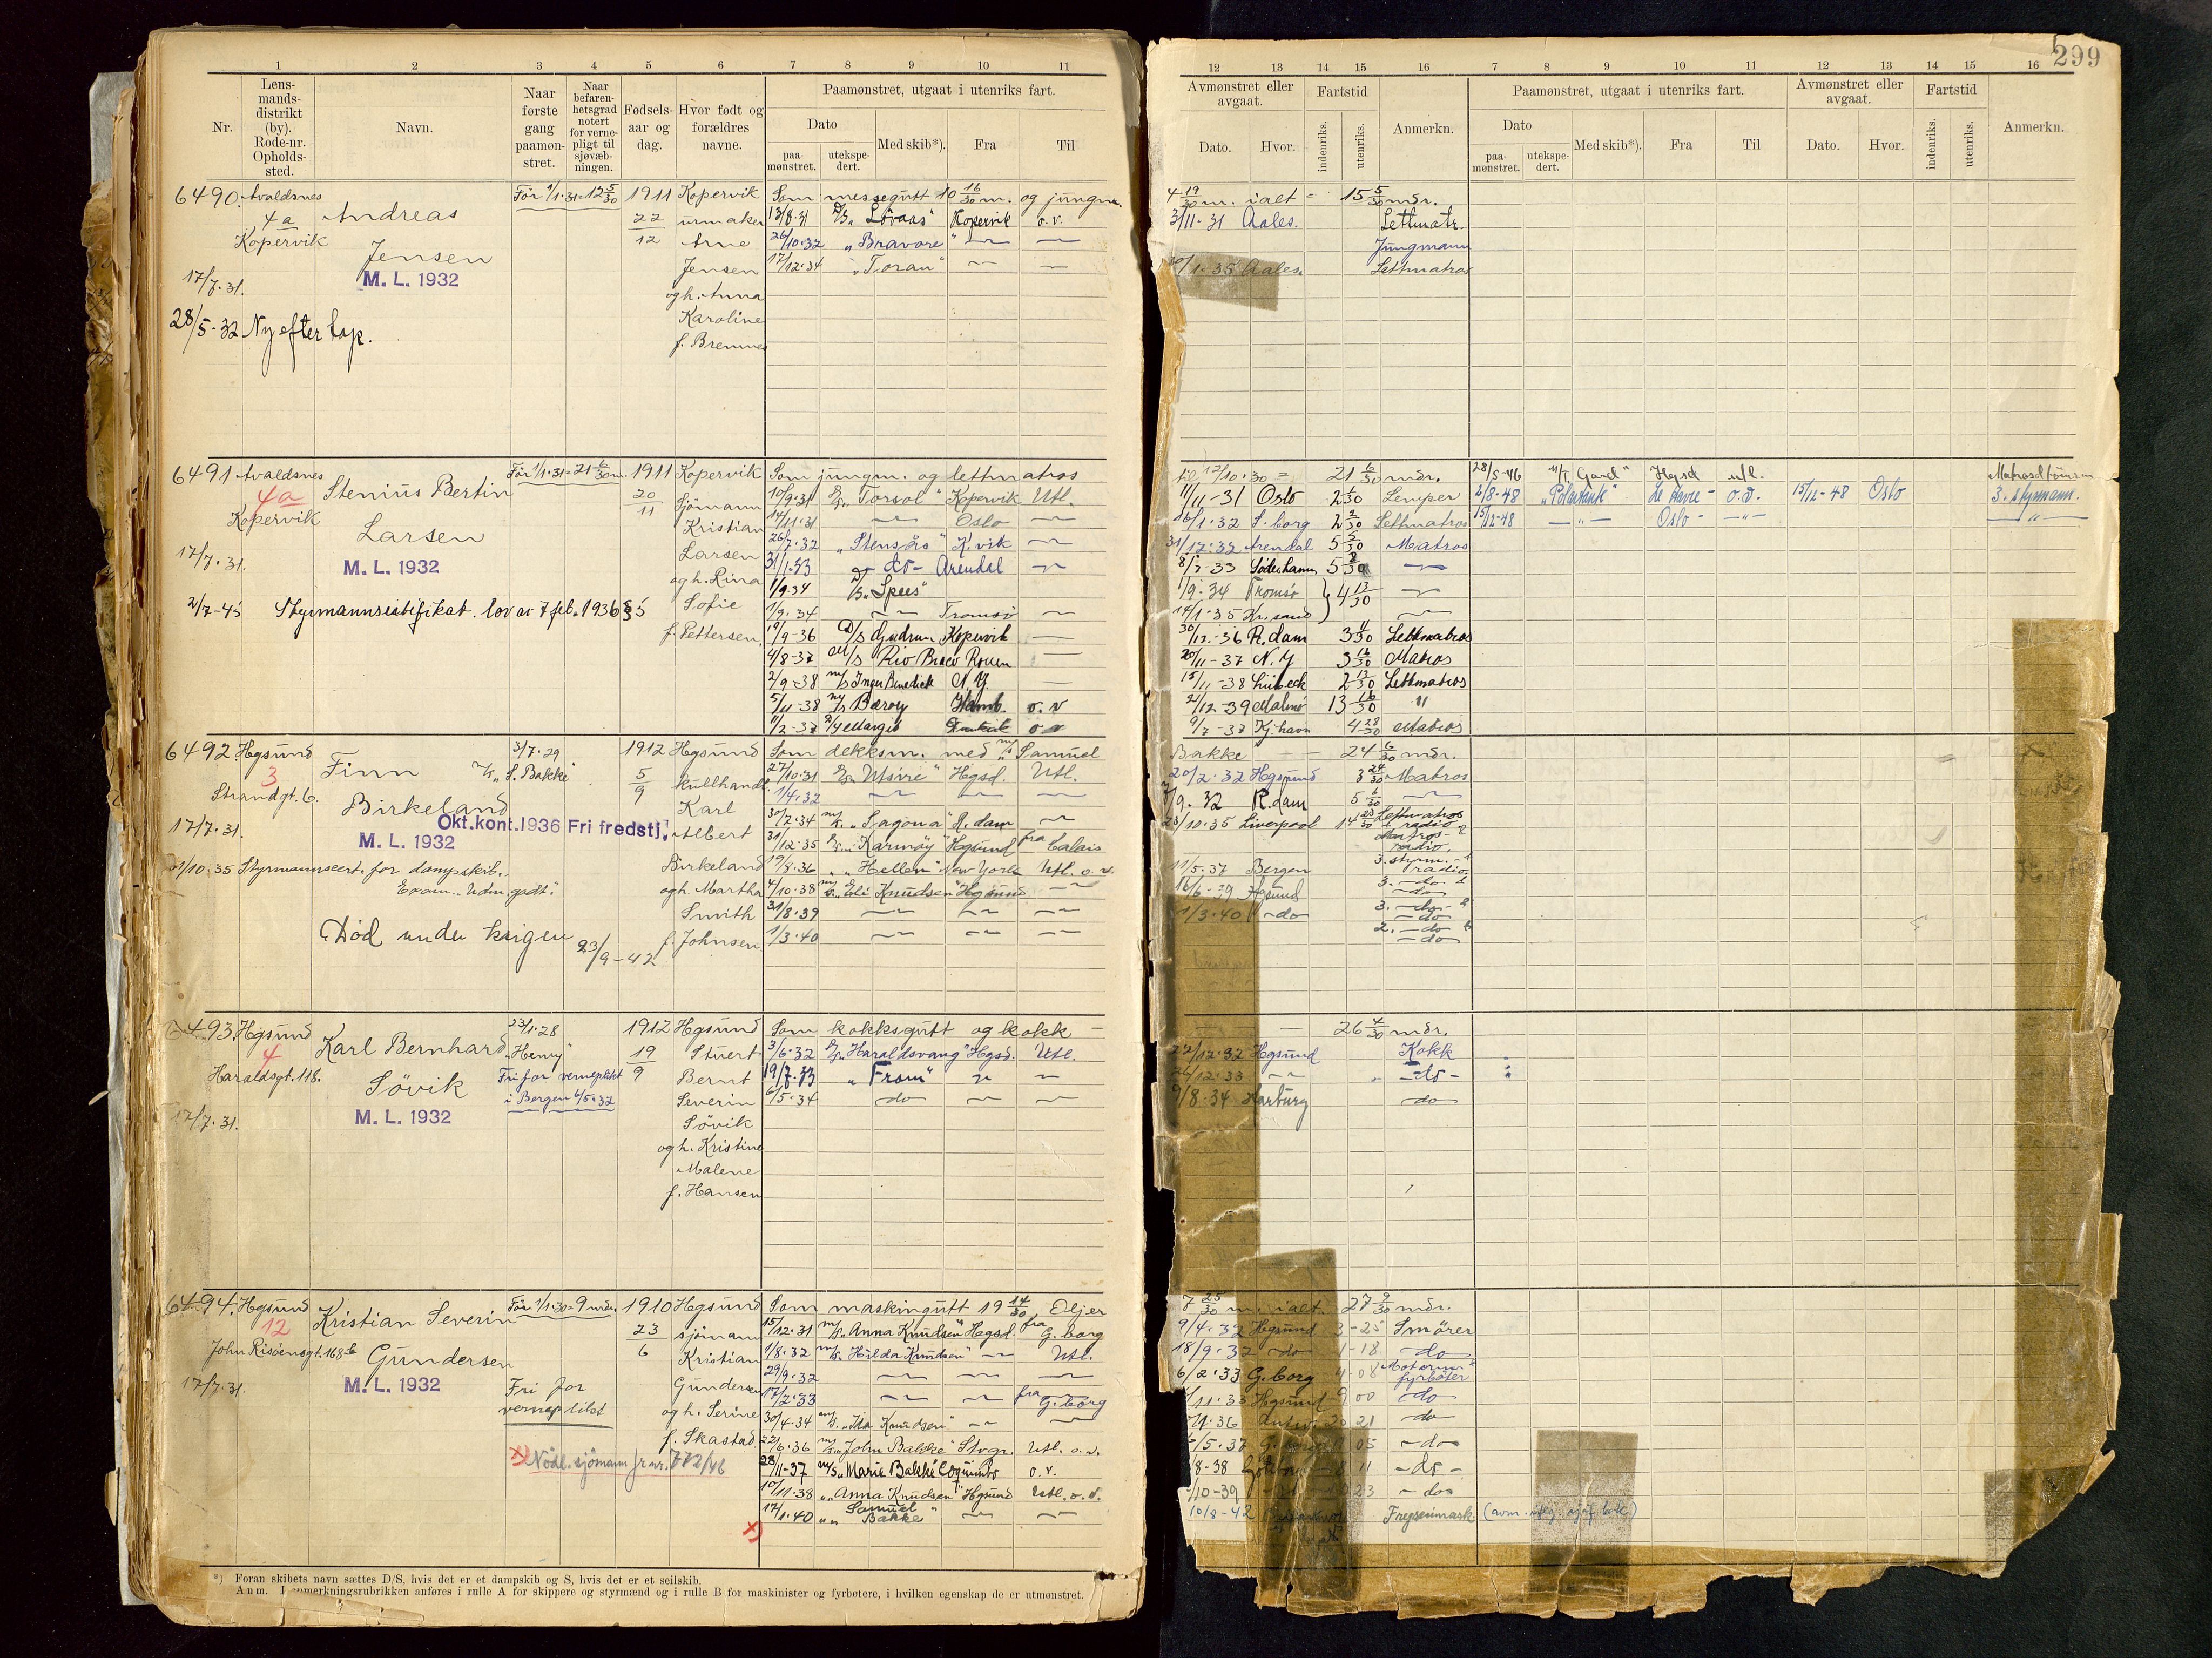 299
1 2 3 4 5 6 7 8 9 10 11
12 13 14 15 16 7 8 9 10 11 12 13 14 15 16
Nr.
Lens-
mands-
distrikt
(by).
Rode-nr.
Opholds-
sted.
Navn.
Naar
første
gang
paamøn-
stret.
Naar
befaren-
hetsgrad
notert
for verne-
pligt til
sjøvæb-
ningen.
Fødsels-
aar og
dag.
Hvor født og
forældres
navne.
Paamønstret, utgaat i utenriks fart.
Dato
paa-
mønstret.
utekspe-
dert.
Med skib*).
Fra
Til
Avmønstret eller
avgaat.
Dato.
Hvor.
Fartstid
indenriks.
utenriks.
Anmerkn.
Paamønstret, utgaat i utenriks fart.
Dato
paa-
mønstret.
utekspe-
dert.
Med skib*).
Fra
Til
Avmønstret eller
avgaat.
Dato.
Hvor.
Fartstid
indenriks.
utenriks.
Anmerkn.
6490. Avaldsnes
4a
Kopervik
17/7.31.
28/5-32 Ny efter tap.
Andreas
Jensen
M. L. 1932
Før 1/1.31 = 12 5/30
1911
22
12
Kopervik
urmaker
Arne
Jensen
og h. Anna
Karoline
f. Bremnes
Som messegutt 10 16/30 m. og jungm.
4 19/30 m. ialt = 15 5/30 mdr.
13/8.31 D/S „Lovaas" Kopervik o.v.
3/11-31 Aales. Lettmatr.
26/10.32 „Bravore" — —
Jungmann
17/12.34 „Toran" — —
1.35 Aales. Lettmatros
6491 Avaldsnes
4a
Kopervik
17/7.31.
Stenius Bertin
Larsen
M. L. 1932
2/7-45 Styrmannssertifikat. lov av 7 feb. 1936 § 5
Før 1/1.31 = 21 6/30 m.
1911
20
11
Kopervik
Sjømann
Kristian
Larsen
og h. Rina
Sofie
f. Pettersen
Som jungm. og lettmatros
til 12/10.30 = 21 6/30 mdr.
10/9.31 „Torsol" Kopervik Utl.
11/11-31 Oslo Lemper
14/11.31 — Oslo —
16/1.32 S. borg Lettmatros
26/7.32 „Stensås" K.vik —
31/12.32 Arendal 5 5/30 Matros
31/1.33 — do — Arendal —
8/7-33 Søderhamn —
1/9.34 D/S „Spes"
1/9.34 Tromsø 4 13/30 —
1/9.34 — Tromsø —
14/1.35 Kr.sand —
19/9-36 D/S Gudrun Kopervik —
30/12.-36 R.dam 3 11/30 Lettmatros
4/8-37 M/S Rio Bravo Rouen —
20/11-37 N.Y 3 16/30 Matros
2/9-38 M/S Inger Benedick N.Y. —
15/11-38 Lübeck 2 13/30 Lettmatros
5/11-38 M/S Bærøy Hamb. o.v
21/12-39 Malmø 13 16/30 "
1/2-37 Margit o.v
9/7-37 Kj.havn 4 28/30 Matros
28/5-46 M/T „Gard" Hgsd u/l. Matros
2/8-48 „Polartank" le Havre - o.v. 15/12-48 Oslo 3. styrmann.
15/12-48 — " — Oslo — " — — " —
6492. Hgsund
3
Strandgt. 6.
17/7.31.
Finn
Birkeland
M. L. 1932
Okt.kont.1936 Fri fredstj.
3/7.29
„S. Bakke"
1912
5
9
Hgsund
kullhandl.
Karl
Albert
Birkeland
og h. Martha
Smith
f. Johnsen
1/10.35 Styrmannscert. for dampskib.
Exam. „Udm. godt".
Død under krigen 23/9-42
Som dekksm. med M/S „Samuel
Bakke — — 24 6/30 mdr.
27/10.31 „Utsire" Hgsd. Utl.
20/2.32 Hgsund 3 24/30 Matros
1/4.32 — — —
9. 32 R.dam 5 6/30 —
30/7.34 M/S „Sagona" R.dam —
23/10.35 Liverpool 14 23/30 Lettmatros
& radio
31/12.35 „Karmøy" Hgsund fra Calais
Matros-
radio.
19/8.36 „Hellen" New York Utl. o.v.
11/5.37 Bergen 3. styrm. -
radio
4/10.38 M/S „Eli Knudsen" Hgsund —
16/6-39 Hgsund 3. — do — &
— do —
31/8.39 — — —
1/3.40 — do — 3. — do — &
— do —
1/3.40 — — —
2. — do &
— do —
6493. Hgsund
4
Haraldsgt. 118.
17/7.31.
Karl Bernhard
Søvik
M. L. 1932
23/1.28
„Henry"
Fri for verneplikt
i Bergen 6/5.32
1912
19
9
Hgsund
Stuert
Bernt
Severin
Søvik
og h. Kristine
Malene
f. Hansen
Som kokksgutt og kokk —
— 26 4/30 mdr.
3/6-32 „Haraldsvang" Hgsd. Utl.
22/12.32 Hgsund Kokk
19/7.33 „Fram" — —
12.33 — — do —
6/5.34 do — —
9/8.34 Harburg do
6494. Hgsund
12
John Risøensgt. 168 b
17/7.31.
Kristian Severin
Gundersen
M. L. 1932
Før 1/1.30 = 9 mdr.
Fri for
verneplikt
x) Nødl. sjømann jr. nr. 772/46
1910
23
6
Hgsund
sjømann
Kristian
Gundersen
og h. Serine
f. Skastad
Som maskingutt 19 14/30 Oljer
7 25/30 m. ialt. 27 9/30 mdr.
15/12.31 M/S „Anna Knudsen" Hgsd. fra G. borg
9/4.32 Hgsund 3-25 Smører
1/8.32 M/S „Hilda Knudsen" — Utl.
18/9.32 — do — 1-18 — do —
29/9.32 — — —
6/2.33 G. borg 4 08 Motorm. &
fyrbøter
17/2.33 — — fra G. borg
11.33 Hgsund 9 00 — do —
30/4.34 M/S „Ida Knudsen" — —
36 Antw. 20 21 — do —
22/6.36 M/S „John Bakke" Stvgr. Utl. o.v.
/5.37 G. borg 05 — do —
28/11-37 M/S „Marie Bakke" o.v.
8-38 11 — do —
10/11.38 „Anna Knudsen" Hgsund Utl. o.v.
10-39 23 — do —
17/1.40 „Samuel
Bakke" — —
10/8-42
x)
*) Foran skibets navn sættes D/S, hvis det er et dampskib og S, hvis det er et seilskib.
Anm. I anmerkningsrubrikken anføres i rulle A for skippere og styrmænd og i rulle B for maskinister og fyrbøtere, i hvilken egenskap de er utmønstret.